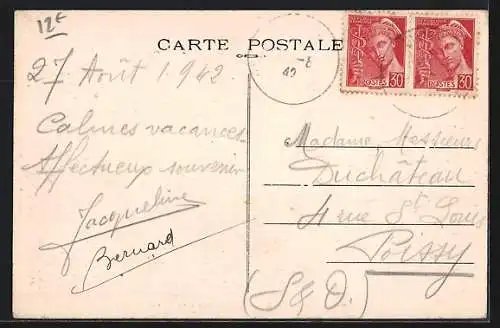 12€
CARTE POSTALE
27 Août 1942
Calmes vacances
Affectueux souvenir
Jacqueline
Bernard
30
POSTES
30
POSTES
-8
Madame Messieurs
Duchâteau
4 rue St Louis
Poissy
(S & O.)